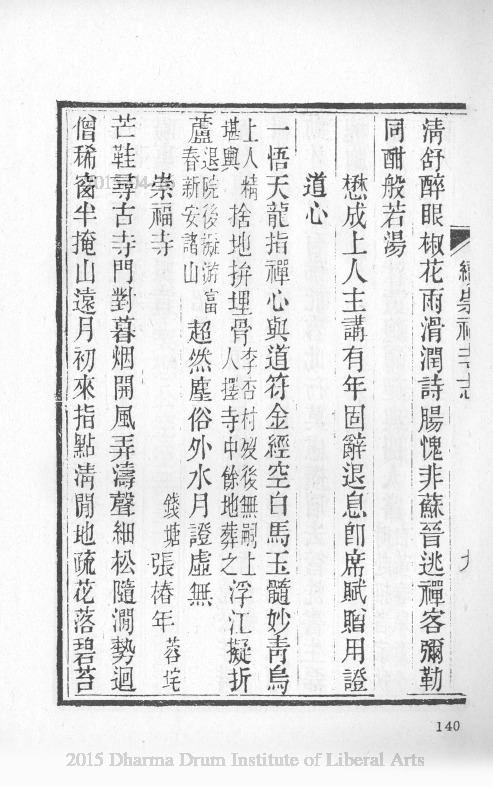 續崇福寺志 九
清舒醉眼椒花雨滑潤詩腸愧非蘇晉逃禪客彌勒
同酣般若湯
懋成上人主講有年固辭退息卽席賦贈用證
道心
一悟天龍指禪心與道符金經空白馬玉髓妙靑烏
上人精堪輿捨地拚埋骨李杏村歿後無嗣上人擇寺中餘地葬之浮江擬折
蘆退院後擬游富春新安諸山超然塵俗外水月證虛無
崇福寺 錢塘張椿年蓉垞
芒鞋尋古寺門對暮烟開風弄濤聲細松隨澗勢迴
僧稀窗半掩山遠月初來指點淸閒地疏花落碧苔
140
2015 Dharma Drum Institute of Liberal Arts